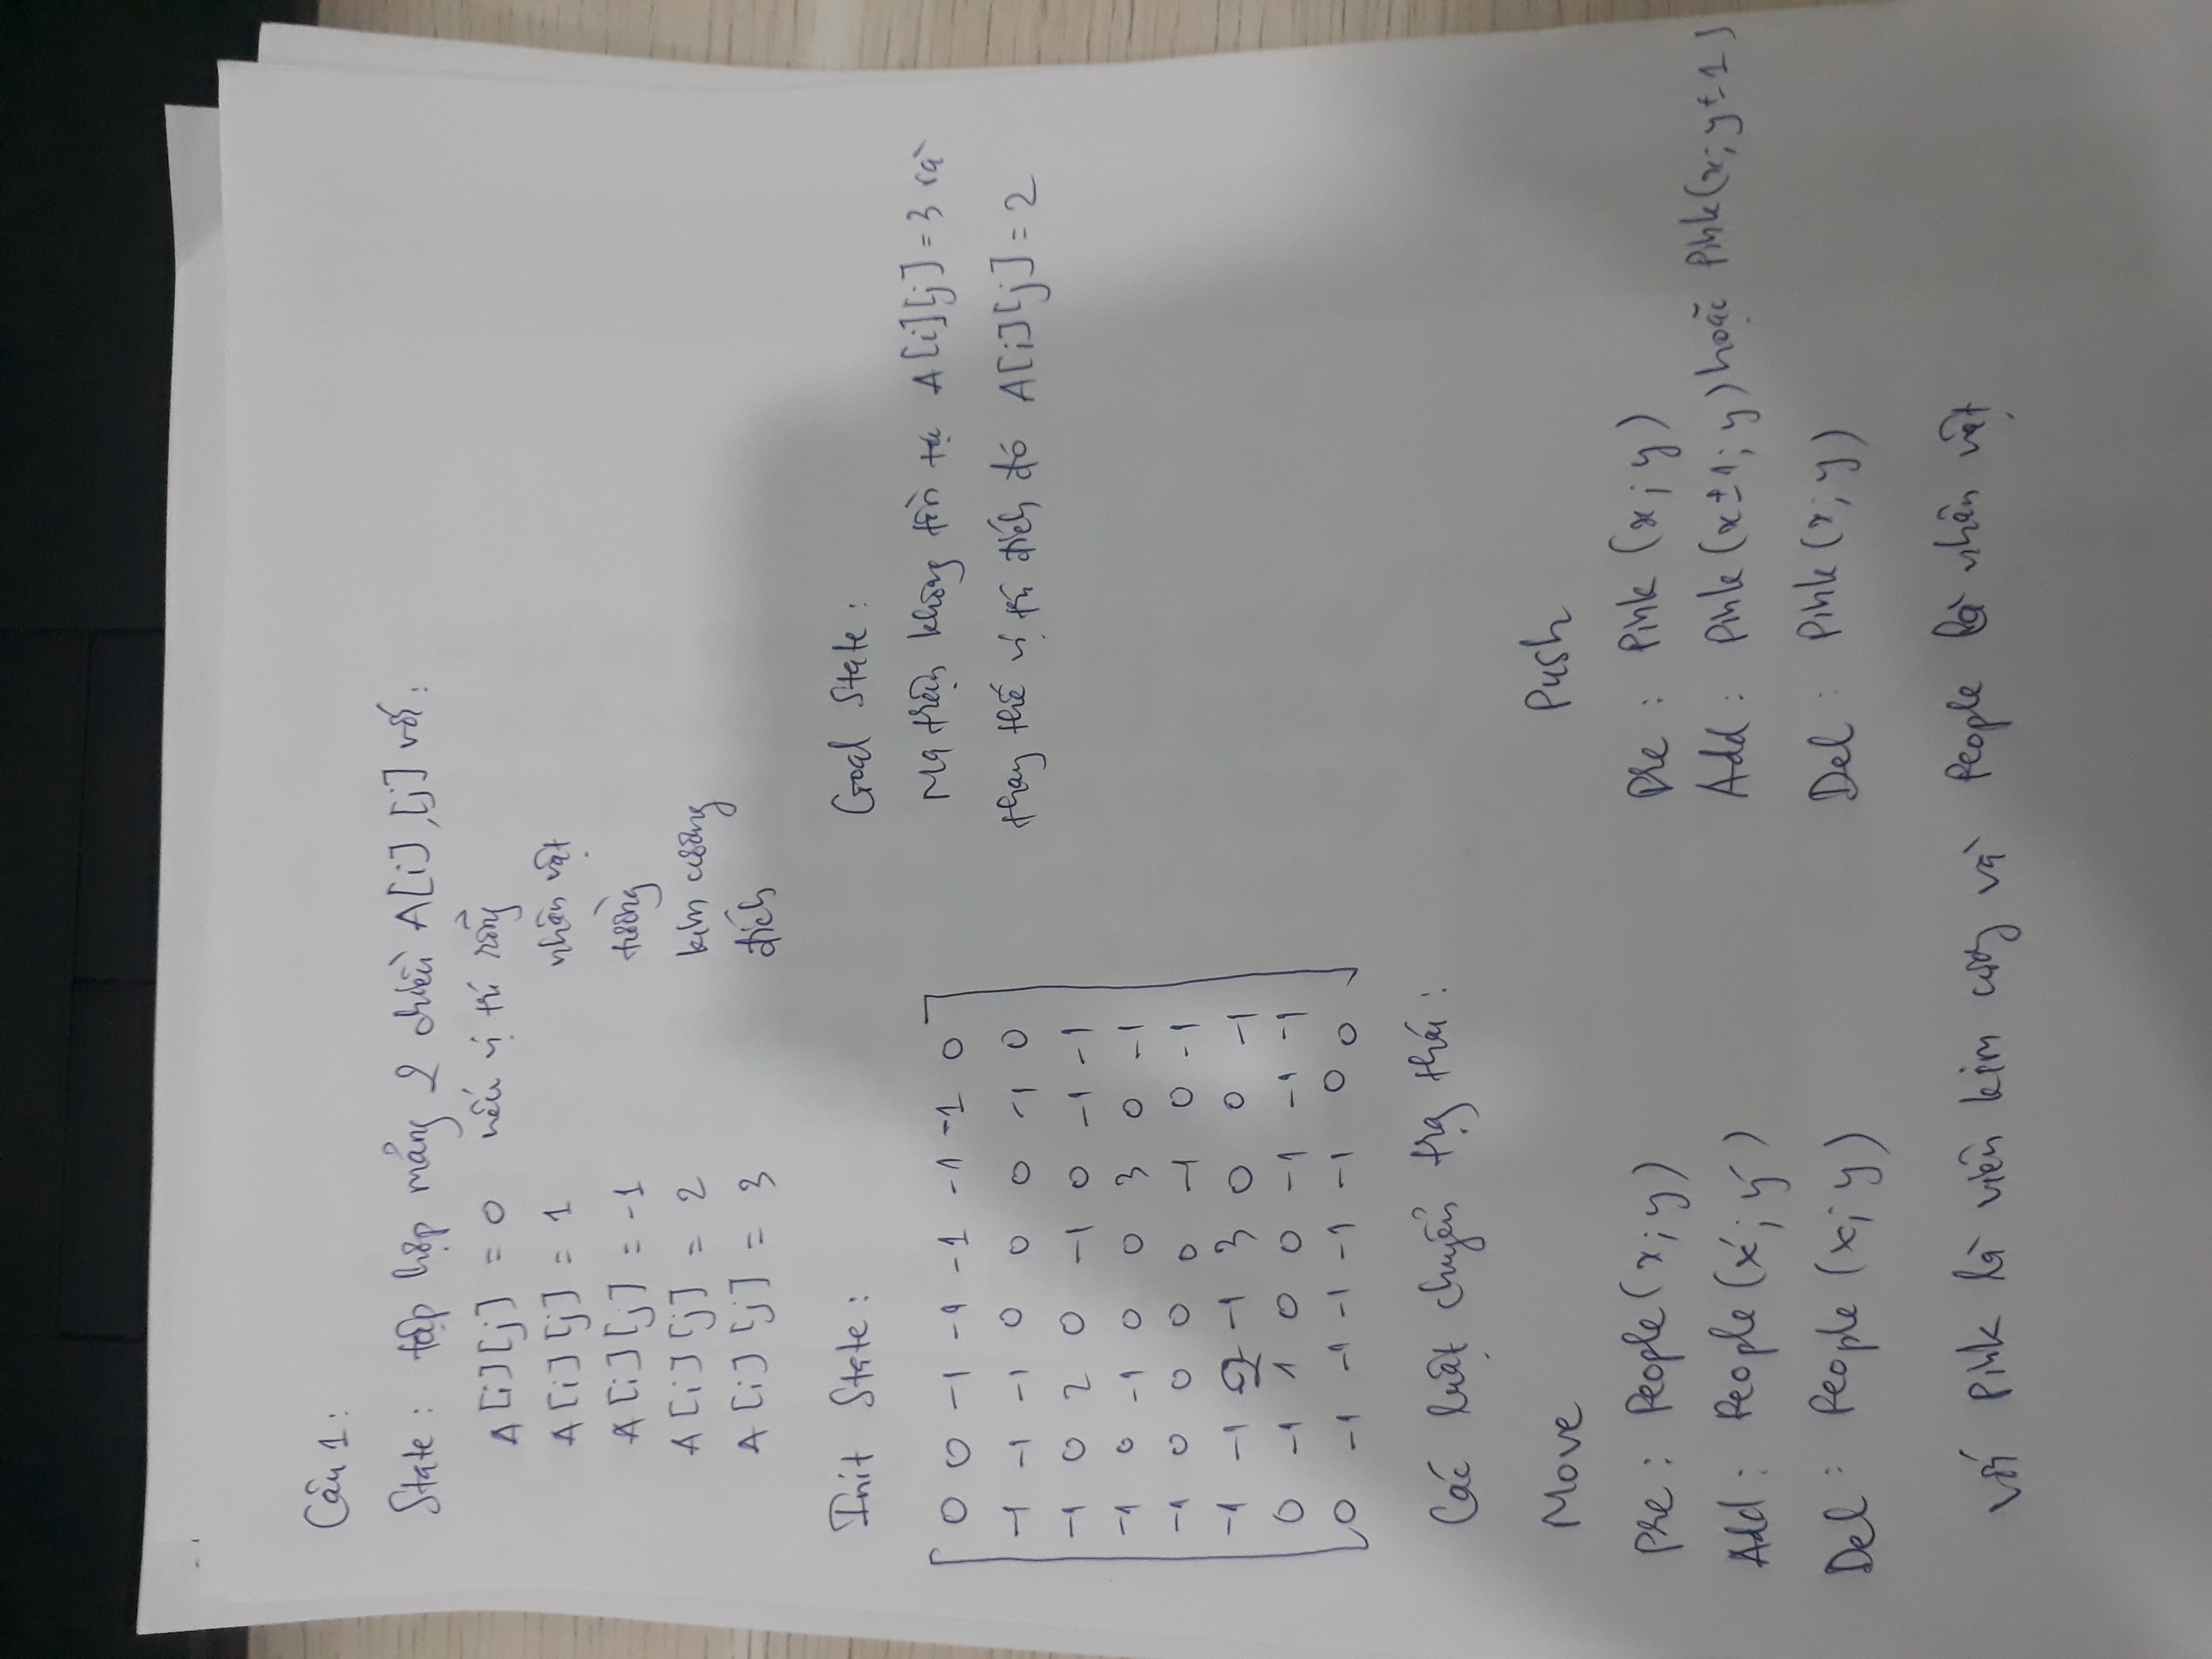 Câu 1:
State: tập hợp mảng 2 chiều A[i],[j] với:
A[i][j] = 0 nếu vị trí rỗng
A[i][j] = 1 nhân vật
A[i][j] = -1 tường
A[i][j] = 2 kim cương
A[i][j] = 3 đích
Init State:
0 0 -1 -1 -1 -1 -1 0
-1 -1 -1 0 0 0 -1 0
-1 0 2 0 -1 0 -1 -1
-1 0 -1 0 0 3 0 -1
-1 0 0 0 0 -1 0 -1
-1 -1 2 -1 3 0 0 -1
0 -1 1 0 0 -1 -1 -1
0 -1 -1 -1 -1 -1 0 0
Goal State:
Ma trận không tồn tại A[i][j] = 3 và
thay thế vị trí đích đó A[i][j] = 2
Các luật chuyển trạng thái:
Move
Pre: People(x; y)
Add: People(x'; y')
Del: People(x; y)
Push
Pre: Pink(x; y)
Add: Pink(x±1; y) hoặc Pink(x; y±1)
Del: Pink(x; y)
với Pink là viên kim cương và People là nhân vật